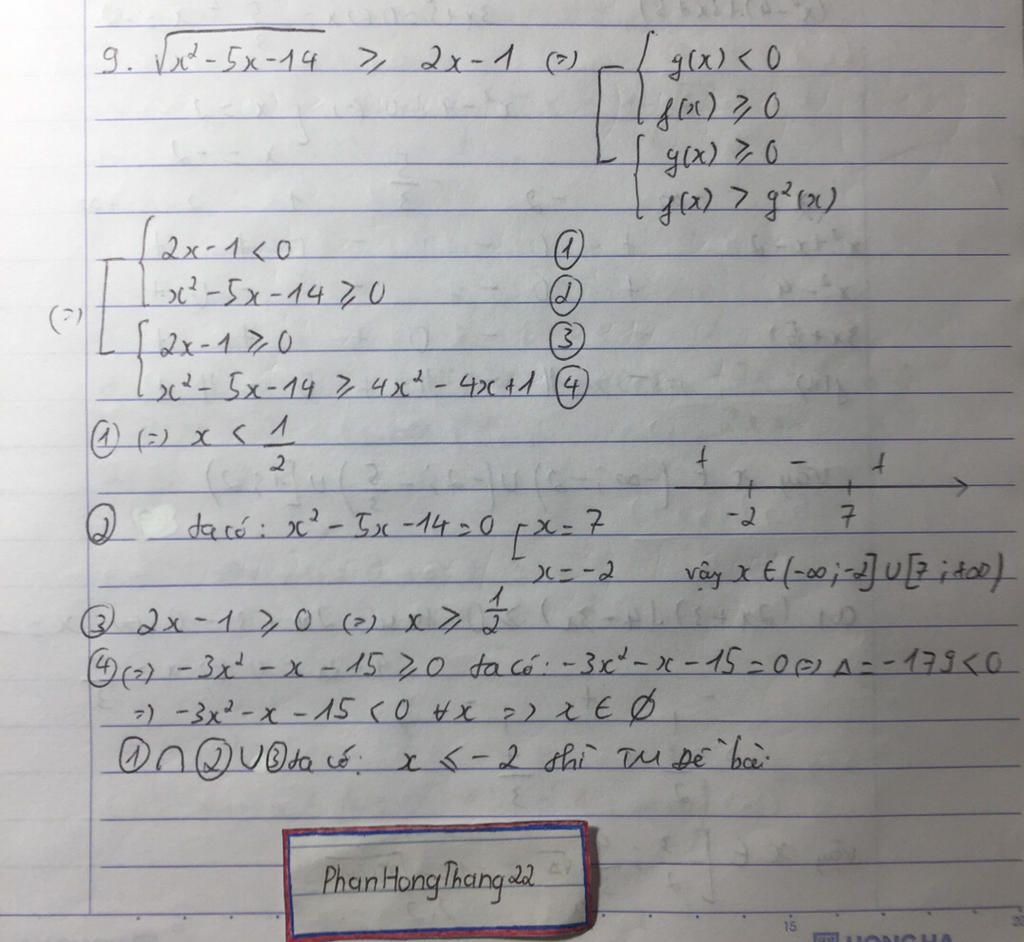 9. √(x² - 5x - 14) ⩾ 2x - 1 (=) [ { g(x) < 0
f(x) ⩾ 0
{ g(x) ⩾ 0
f(x) > g²(x)
(=) [ { 2x - 1 < 0 ①
x² - 5x - 14 ⩾ 0 ②
{ 2x - 1 ⩾ 0 ③
x² - 5x - 14 ⩾ 4x² - 4x + 1 ④
① (=) x < 1/2
+ - +
-2 7
② ta có: x² - 5x - 14 = 0 [ x = 7
x = -2 vậy x ∈ (-∞; -2] ∪ [7; +∞)
③ 2x - 1 ⩾ 0 (=) x ⩾ 1/2
④ (=) -3x² - x - 15 ⩾ 0 ta có: -3x² - x - 15 = 0 (=) Δ = -179 < 0
=) -3x² - x - 15 < 0 ∀x =) x ∈ ∅
① ∩ ② ∪ ③ ta có: x ⩽ -2 thì TM Đề bài.
PhanHongThang22
15
HONG HA